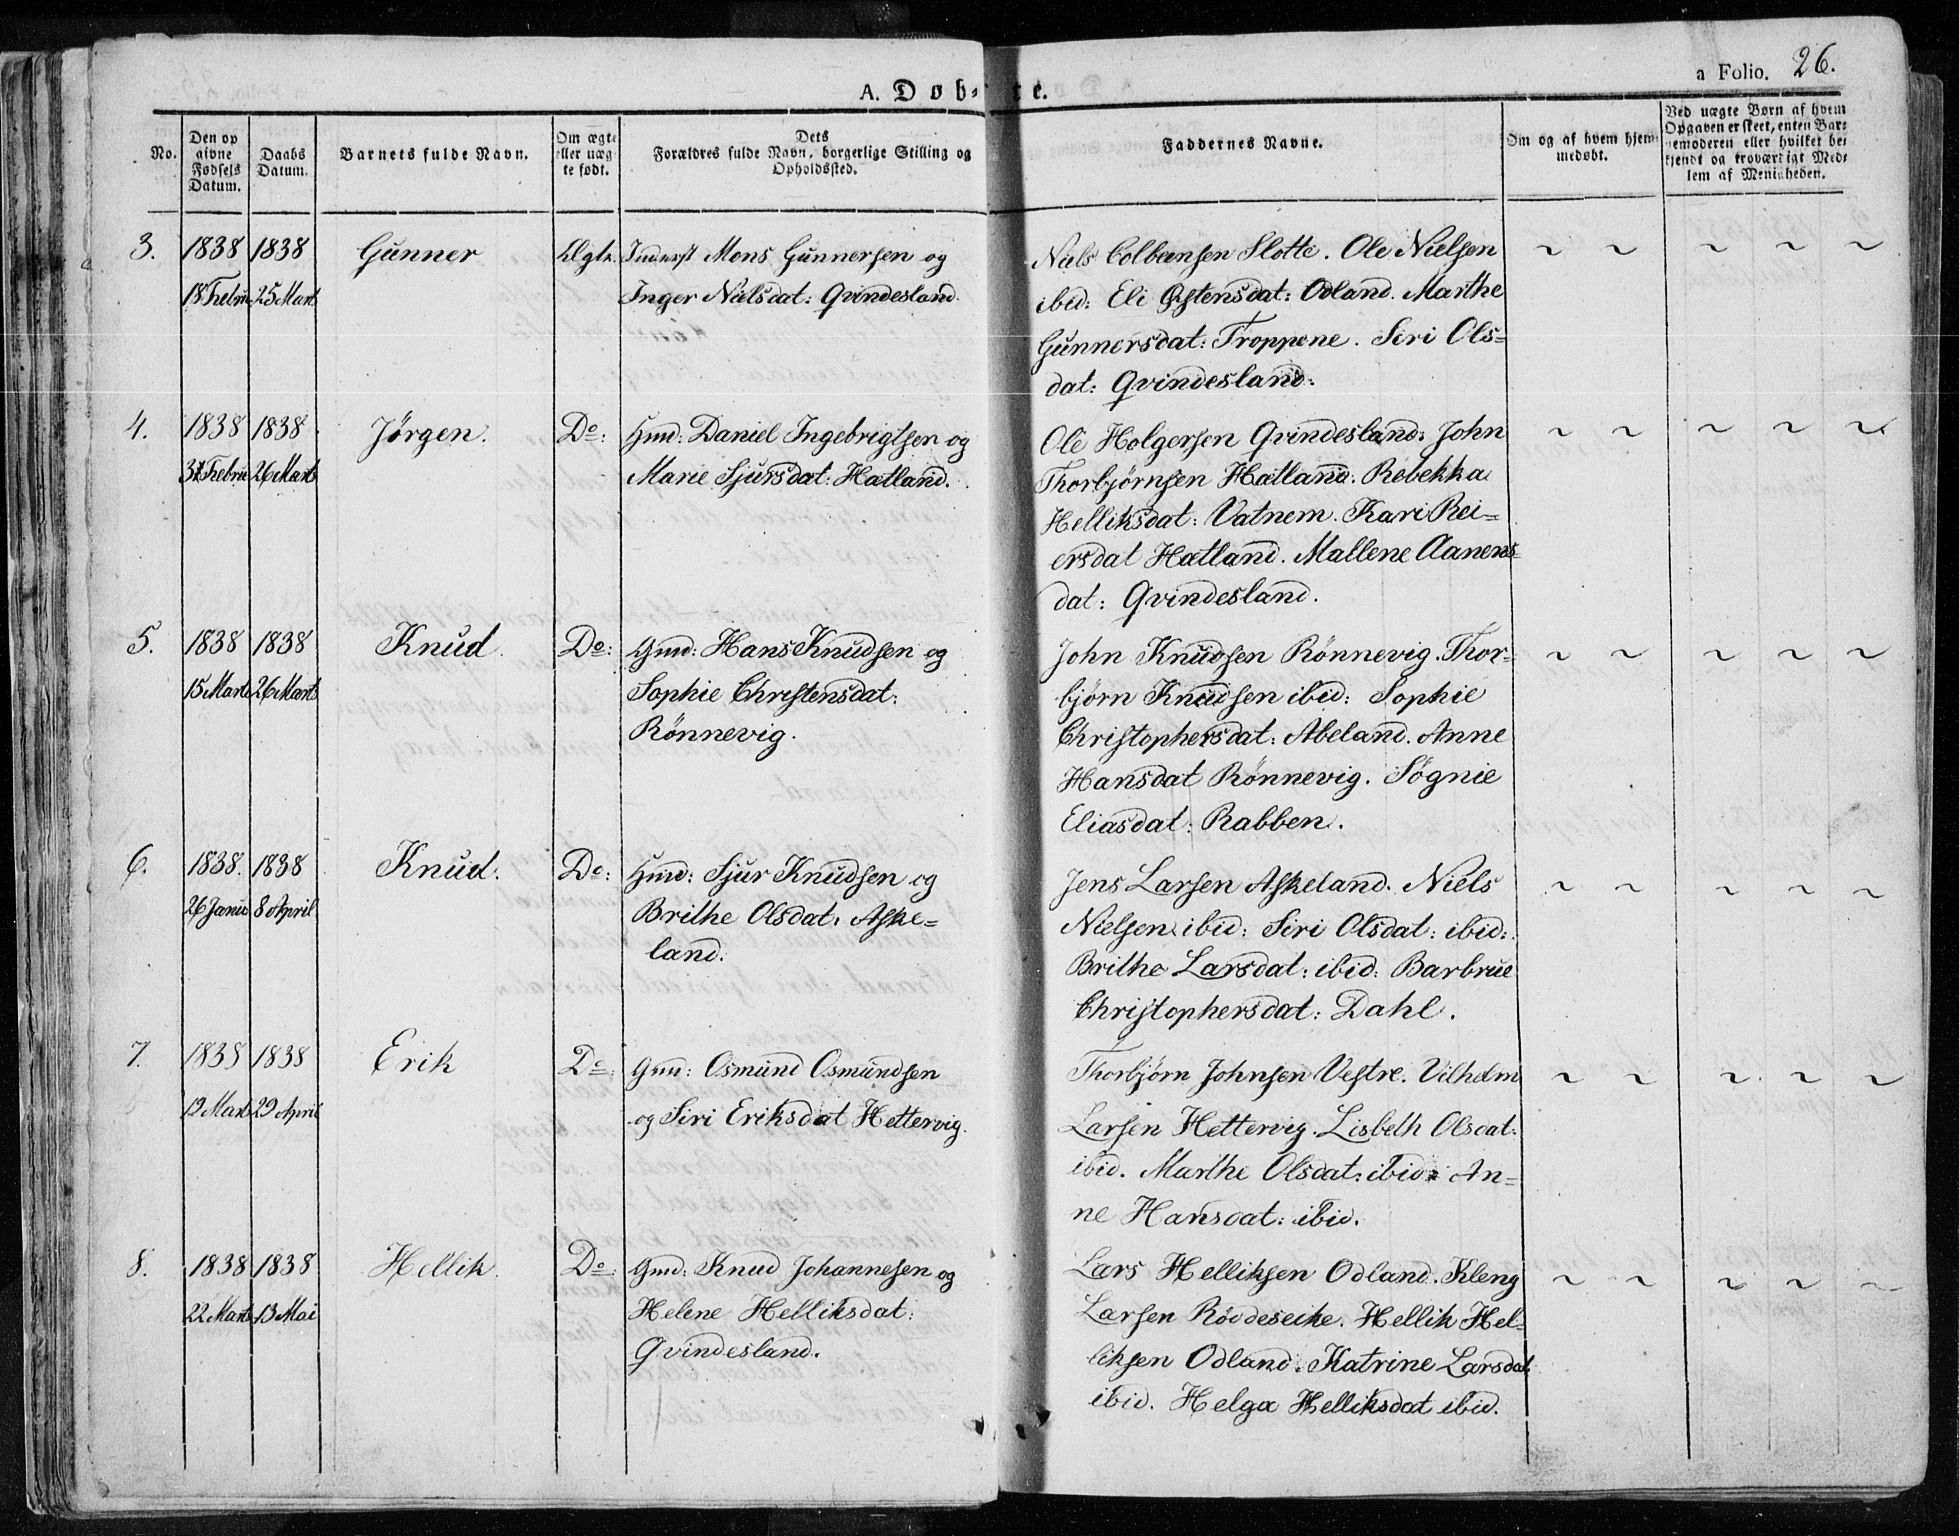 a Folio. 26.
A. Døbte.
No.
Den op
givne
Fødsels
Datum.
Daabs
Datum.
Barnets fulde Navn.
Om ægte
eller uæg
te født.
Dets
Forældres fulde Navn, borgerlige Stilling og
Opholdssted.
Faddernes Navne.
Om og af hvem hjem-
medøbt.
Ved uægte Børn af hvem
Opgaven er skeet, enten Bar-
nemoderen eller hvilket be-
kjendt og troværdigt Med-
lem af Menigheden.
3. 1838 1838 Gunner Ægte. Inderst Mons Gunnersen og
18 Februar 25 Marts Inger Nielsdat: Qvindesland.
Niels Colbensen Slotte. Ole Nielsen
ibid: Eli Østensdat: Odland. Marthe
Gunnersdat: Troppene. Siri Ols-
dat: Qvindesland.
4. 1838 1838 Jørgen. Do: Hmd: Daniel Ingebrigtsen og
Februar 26 Marts Marie Sjursdat: Hatland.
Ole Holgersen Qvindesland: John
Thorbjørnsen Hatland. Rebekka
Helliksdat: Vatnem. Kari Rei-
ersdat Hatland. Mallene Aanens-
dat: Qvindesland.
5. 1838 1838 Knud. Do: Gmd: Hans Knudsen og
15 Marts 26 Marts Sophie Christensdat:
Rönnevig.
John Knudsen Rönnevig. Thor-
bjørn Knudsen ibid: Sophie
Christophersdat: Abeland. Anne
Hansdat Rönnevig. Sögnie
Eliasdat: Rabben.
6. 1838. 1838 Knud. Do: Hmd: Sjur Knudsen og
26 Janu 8 April Brithe Olsdat: Aske-
land.
Jens Larsen Askeland. Niels
Nielsen ibid: Siri Olsdat: ibid:
Brithe Larsdat: ibid: Barbrue
Christophersdat: Dahl.
7. 1838 1838 Erik Do: Gmd: Osmund Osmundsen
Marts 29 April og Siri Eriksdat Hettervig.
Thorbjørn Johnsen Vestre. Vilhelm
Larsen Hettervig. Lisbeth Olsdat:
ibid. Marthe Olsdat: ibid: An-
ne Hansdat: ibid.
8. 1838 1838 Hellik. Do: Gmd: Knud Johannesen og
22 Marts 13 Mai Helene Helliksdat:
Qvindesland.
Lars Helliksen Odland. Kleng
Larsen Röddeseike. Hellik Hel-
liksen Odland. Katrine Larsdat
ibid. Helga Helliksdat ibid.